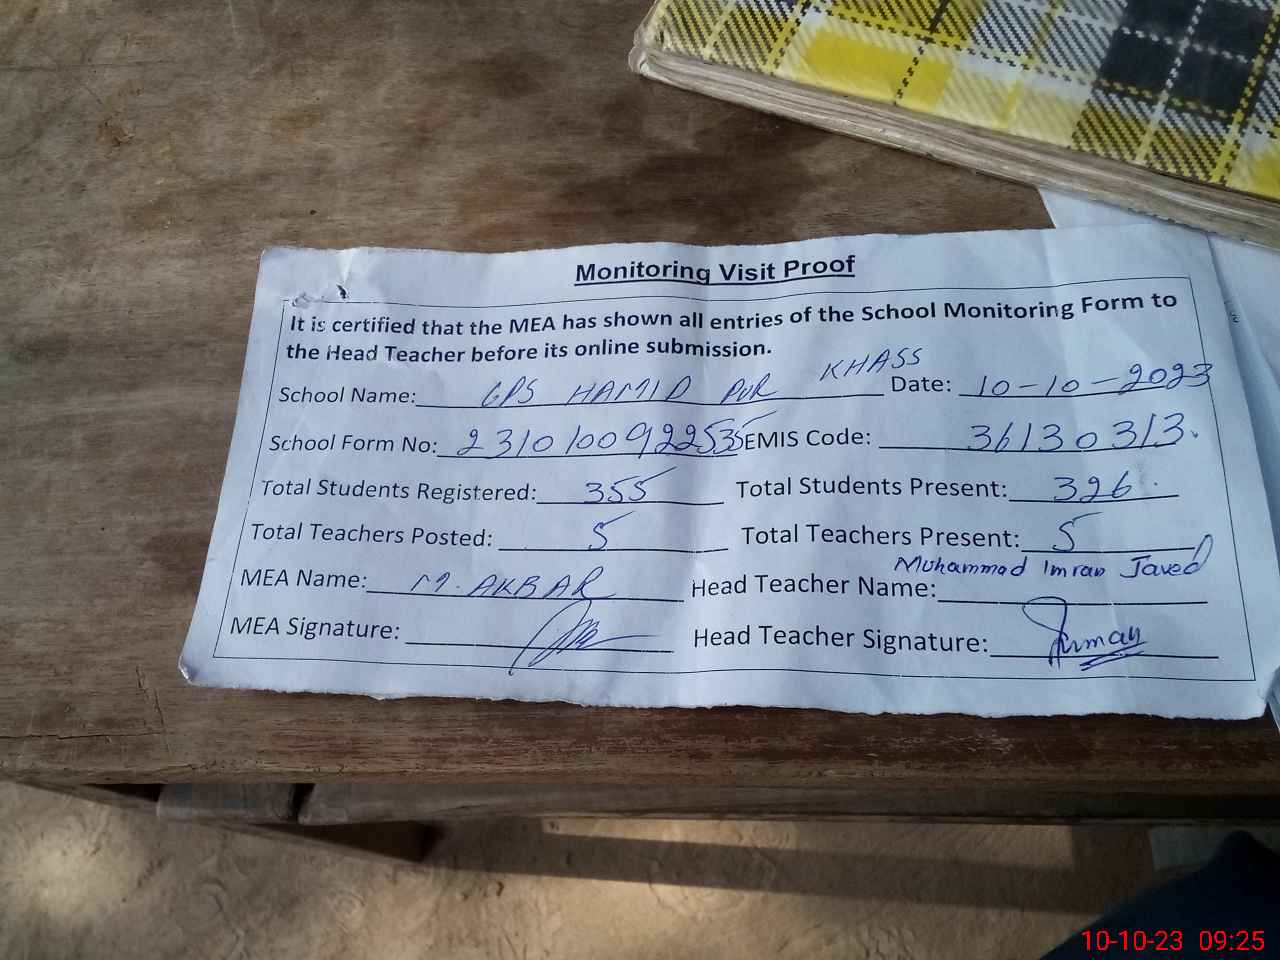 Monitoring Visit Proof
It is certified that the MEA has shown all entries of the School Monitoring Form to
the Head Teacher before its online submission.
School Name: GPS HAMID PUR KHASS Date: 10-10-2023
School Form No: 2310100922535 EMIS Code: 36130313
Total Students Registered: 355 Total Students Present: 326
Total Teachers Posted: 5 Total Teachers Present: 5
MEA Name: M. AKBAR Head Teacher Name: Muhammad Imran Javed
MEA Signature: Head Teacher Signature:
10-10-23 09:25